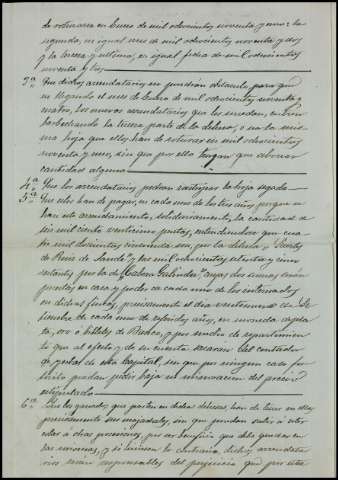 de roturarse en Enero de mil ochocientos noventa y uno: la
segunda, en igual mes de mil ochocientos noventa y dos
y la tercera y ultima, en igual fecha de mil ochocientos
noventa y tres
3ª Que dichos arrendatarios en para que
en llegando el mes de Enero de mil ochocientos noventa y
cuatro, los nuevos arrendatarios que les sucedan, en
barbechando la tercera parte de la dehesa, o sea la mis-
ma hoja que ellos han de roturar en mil ochocientos
noventa y uno, sin que por ello tengan que abonar
cantidad alguna
4ª Que los arrendatarios podran la hoja segada
5ª Que estos han de pagar, en cada uno de los tres años porque se
han este arrendamiento, solidariamente, la cantidad de
seis mil ciento veinticinco pesetas, entendiendose que cua-
tro mil doscientas cincuenta son, por la dehesa
de y mil ochocientas setenta y cinco
restantes por la de cuyas dos sumas
puestas en casa y poder de cada uno de los interesados
en dichas fincas, precisamente el dia veintinueve de Se-
tiembre de cada uno de referidos años, en moneda de pla-
ta, oro ó billetes de Banco, y por medio de repartimien-
to que al efecto y de su cuenta sacarán del contador
de esta Capital, sin que por ningun caso for-
tuito puedan pedir baja ni del precio
estipulado
6ª Que los ganados que pasten en dichas dehesas, han de tener en ellas
precisamente sus majadales, sin que puedan salir á oter-
der á otras posesiones, por el beneficio que debe quedar en
las mismas, y si hiciesen lo contrario, dichos arrendata-
rios seran responsables del perjuicio que por este